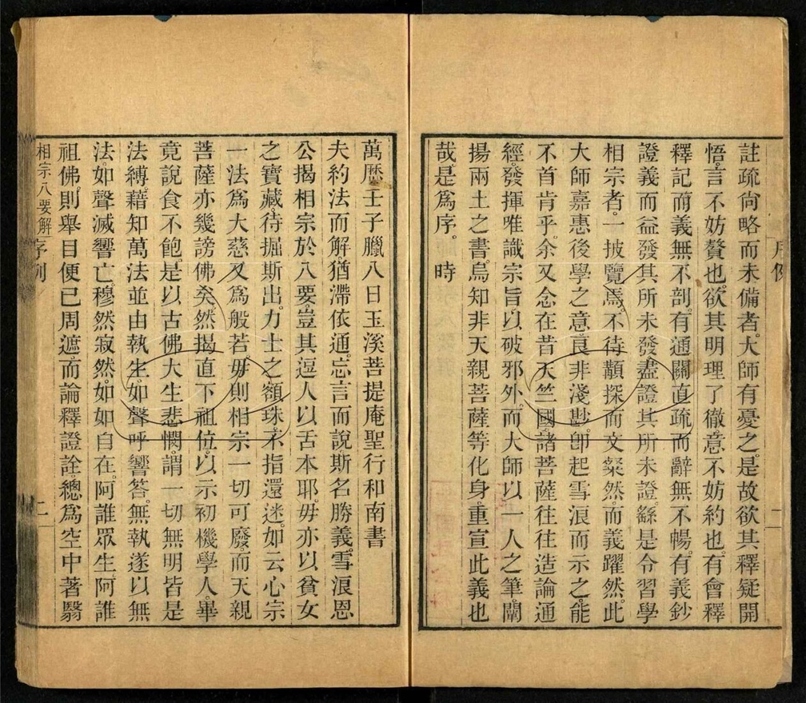 序例
二
註疏尙略而未備者大師有憂之是故欲其釋疑開
悟言不妨贅也欲其明理了徹意不妨約也有會釋
釋記而義無不剖有通關直疏而辭無不暢有義鈔
證義而益發其所未發盡證其所未證繇是令習學
相宗者一披覽焉不待顴探而文粲然而義躍然此
大師嘉惠後學之意良非淺尟卽起雪浪而示之能
不首肯乎余又念在昔天竺國諸菩薩往往造論通
經發揮唯識宗旨以破邪外而大師以一人之筆闡
揚兩土之書烏知非天親菩薩等化身重宣此義也
哉是爲序時
萬歷壬子臘八日玉溪菩提庵聖行和南書
夫約法而解猶滯依通忘言而說斯名勝義雪浪恩
公揭相宗於八要豈其逗人以舌本耶毋亦以貧女
之寶藏待掘斯出力士之額珠不指還迷如云心宗
一法爲大慈又爲般若毋則相宗一切可廢而天親
菩薩亦幾謗佛矣然揭直下祖位以示初機學人畢
竟說食不飽是以古佛大生悲憫謂一切無明皆是
法縛藉知萬法並由執生如聲呼響答無執遂以無
法如聲滅響亡穆然寂然如如自在阿誰眾生阿誰
祖佛則舉目便已周遮而論釋證詮總爲空中著翳
相宗八要解 序例
二